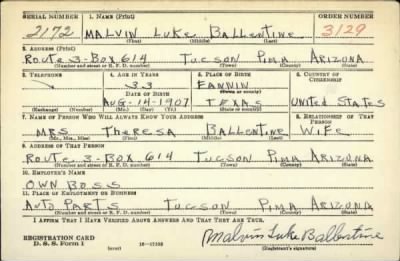 SERIAL NUMBER 1. NAME (Print) ORDER NUMBER
2172 MALVIN LUKE BALLENTINE 3129
(First) (Middle) (Last)
2. ADDRESS (Print)
ROUTE 3-BOX 614 TUCSON PIMA ARIZONA
(Number and street or R. F. D. number) (Town) (County) (State)
3. TELEPHONE 4. AGE IN YEARS 5. PLACE OF BIRTH 6. COUNTRY OF CITIZENSHIP
33 FANNIN
DATE OF BIRTH (Town or county)
AUG-14-1907 TEXAS UNITED STATES
(Exchange) (Number) (Mo.) (Day) (Yr.) (State or country)
7. NAME OF PERSON WHO WILL ALWAYS KNOW YOUR ADDRESS 8. RELATIONSHIP OF THAT PERSON
MRS THERESA BALLENTINE WIFE
(Mr., Mrs., Miss) (First) (Middle) (Last)
9. ADDRESS OF THAT PERSON
ROUTE 3-BOX 614 TUCSON PIMA ARIZONA
(Number and street or R. F. D. number) (Town) (County) (State)
10. EMPLOYER'S NAME
OWN BOSS
11. PLACE OF EMPLOYMENT OR BUSINESS
AUTO PARTS TUCSON PIMA ARIZONA
(Number and street or R. F. D. number) (Town) (County) (State)
I AFFIRM THAT I HAVE VERIFIED ABOVE ANSWERS AND THAT THEY ARE TRUE.
REGISTRATION CARD
D. S. S. Form 1 (over) 16-17105 Malvin Luke Ballentine
(Registrant's signature)